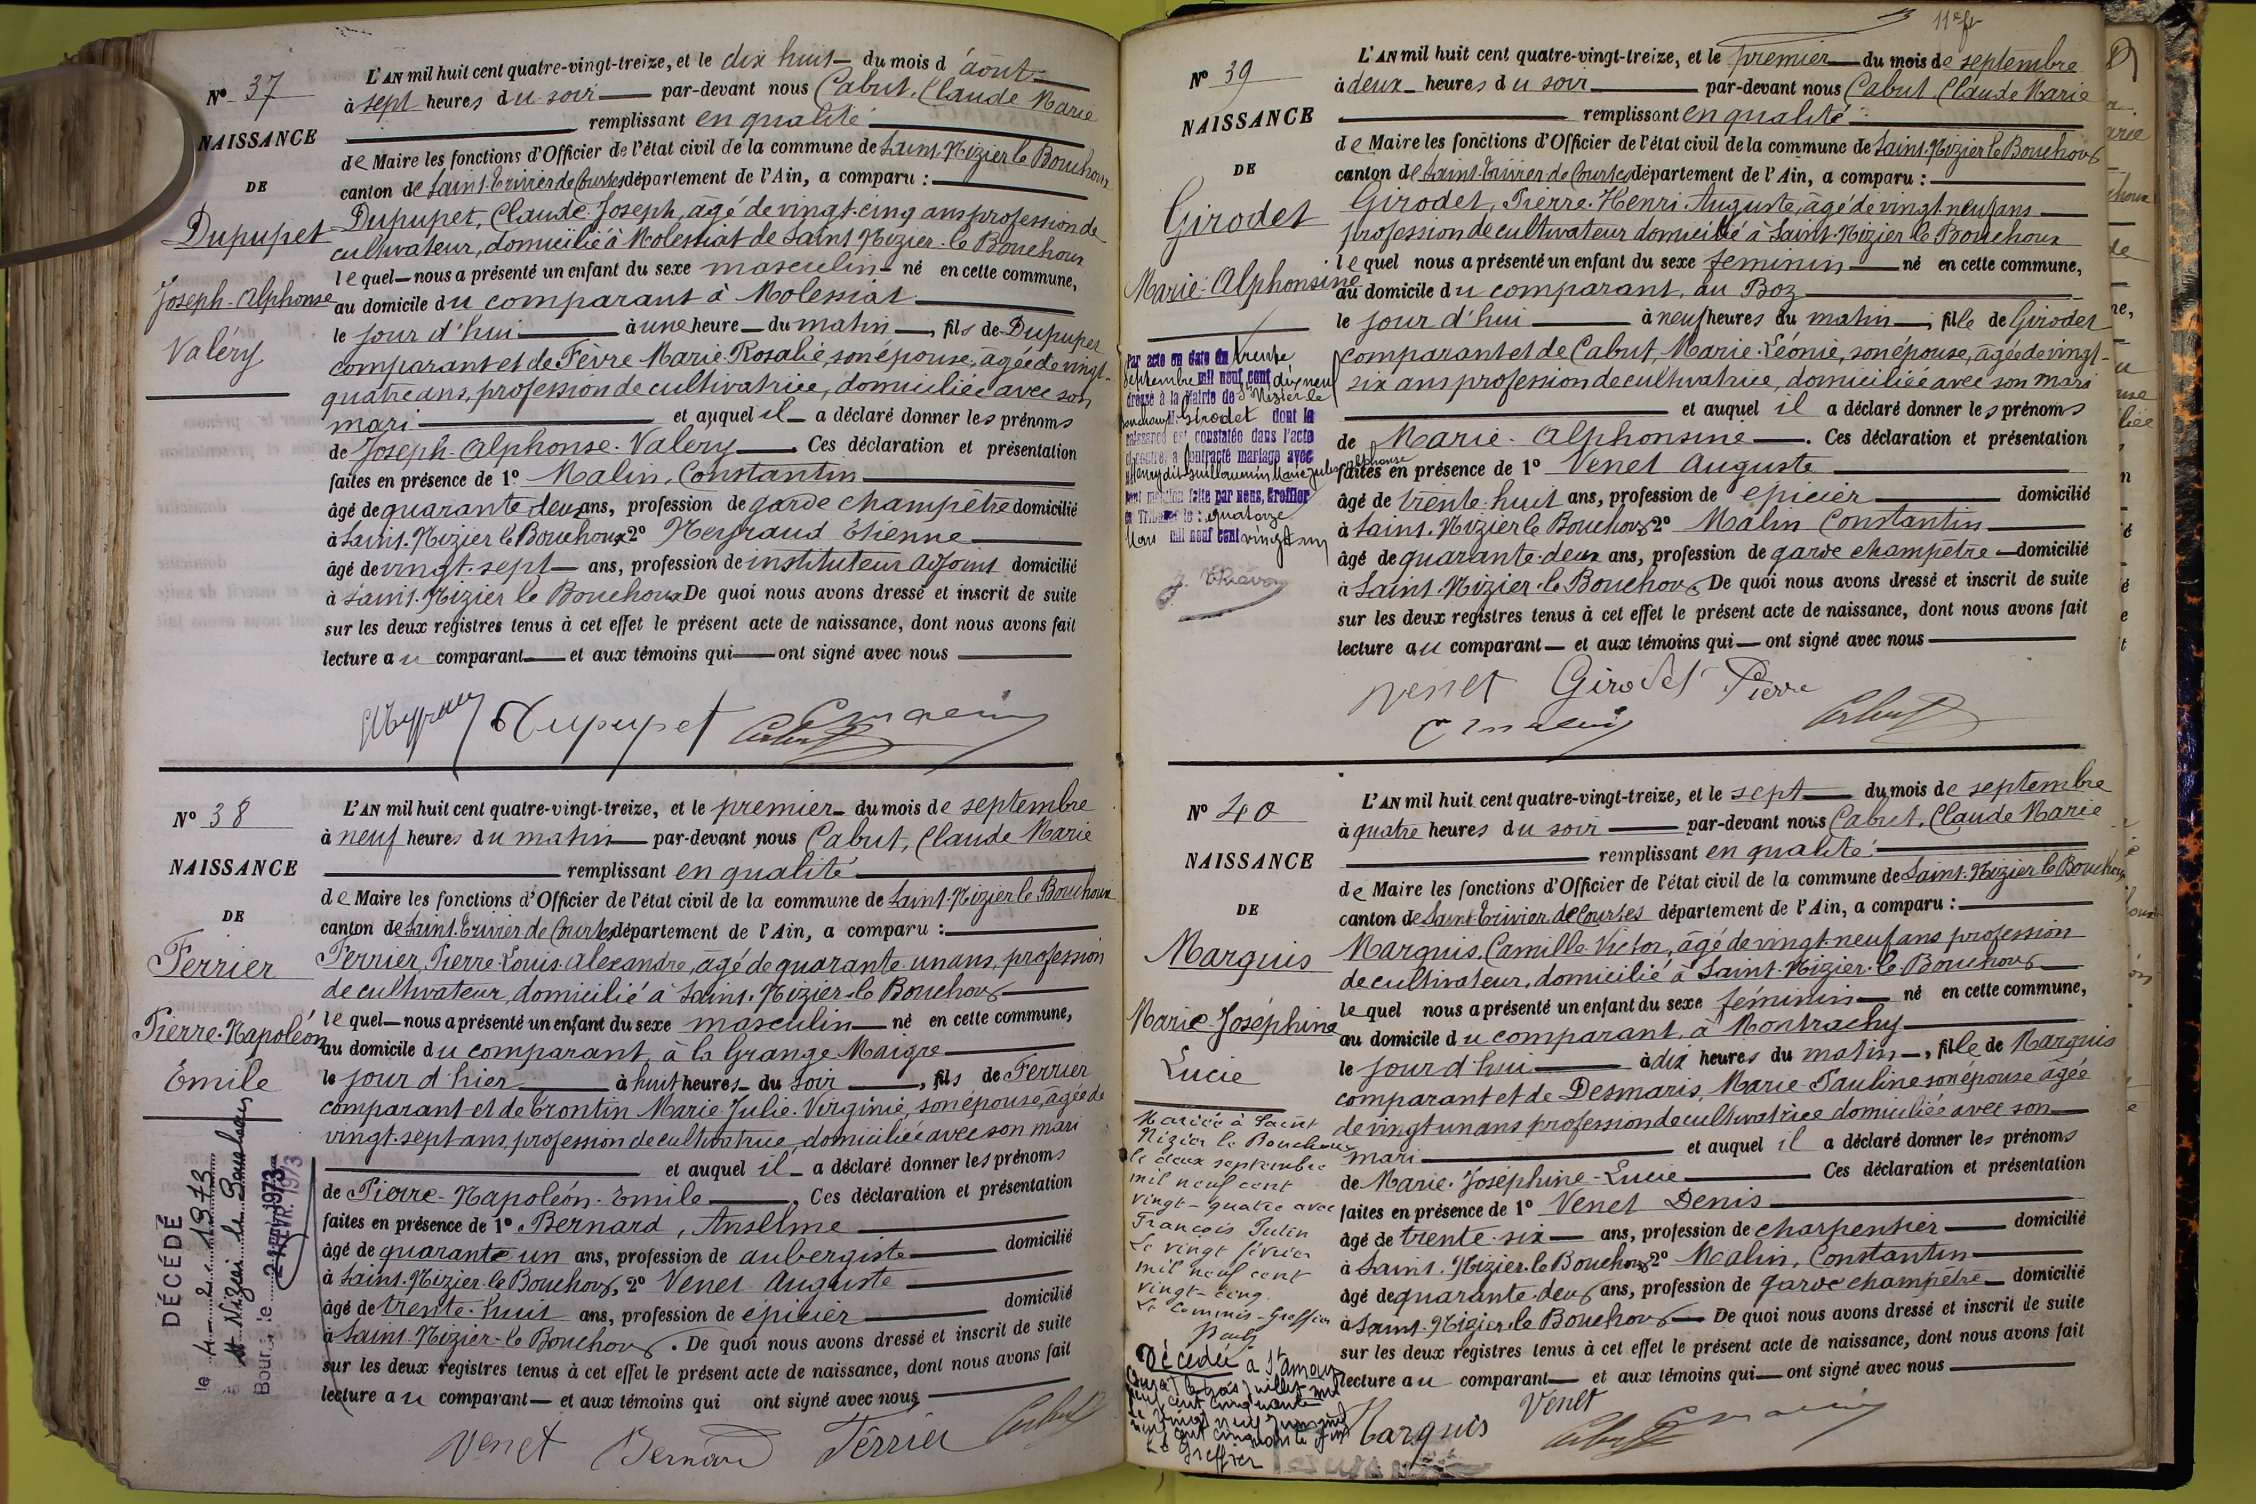 N° 37
NAISSANCE
DE
Dupupet
Joseph-Alphonse
Valéry
L'AN mil huit cent quatre-vingt-treize, et le dix huit du mois d'août
à sept heures du soir par-devant nous Cabut, Claude Marie
remplissant en qualité
de Maire les fonctions d'Officier de l'état civil de la commune de Saint-Nizier le Bouchoux
canton de Saint-Trivier de Courtes département de l'Ain, a comparu :
Dupupet, Claude Joseph, âgé de vingt-cinq ans profession de
cultivateur, domicilié à Molessiat de Saint Nizier-le Bouchoux
lequel nous a présenté un enfant du sexe masculin né en cette commune,
au domicile du comparant à Molessiat
le jour d'hui à une heure du matin, fils de Dupupet
comparant et de Fèvre Marie-Rosalie, son épouse, âgée de vingt-
quatre ans, profession de cultivatrice, domiciliée avec son
mari et auquel il a déclaré donner les prénoms
de Joseph-Alphonse-Valery Ces déclaration et présentation
faites en présence de 1° Malin, Constantin
âgé de quarante deux ans, profession de garde champêtre domicilié
à Saint-Nizier le Bouchoux 2° Meyraud Etienne
âgé de vingt-sept ans, profession de instituteur adjoint domicilié
à Saint-Nizier le Bouchoux De quoi nous avons dressé et inscrit de suite
sur les deux registres tenus à cet effet le présent acte de naissance, dont nous avons fait
lecture au comparant et aux témoins qui ont signé avec nous
Dupupet C Malin
Cabut
N° 38
NAISSANCE
DE
Ferrier
Pierre-Napoléon
Émile
DÉCÉDÉ
le 4-2-1973
à St Nizier le Bouchoux
Bourg le
L'AN mil huit cent quatre-vingt-treize, et le premier du mois de septembre
à neuf heures du matin par-devant nous Cabut, Claude Marie
remplissant en qualité
de Maire les fonctions d'Officier de l'état civil de la commune de Saint-Nizier le Bouchoux
canton de Saint-Trivier de Courtes département de l'Ain, a comparu :
Ferrier, Pierre-Louis-Alexandre, âgé de quarante un ans, profession
de cultivateur, domicilié à Saint-Nizier-le Bouchoux
lequel nous a présenté un enfant du sexe masculin né en cette commune,
au domicile du comparant, à la Grange Maigre
le jour d'hier à huit heures du soir, fils de Ferrier
comparant et de Brontin Marie-Julie-Virginie, son épouse, âgée de
vingt-sept ans, profession de cultivatrice, domiciliée avec son mari
et auquel il a déclaré donner les prénoms
de Pierre-Napoléon-Emile, Ces déclaration et présentation
faites en présence de 1° Bernard, Anselme
âgé de quarante un ans, profession de aubergiste domicilié
à Saint-Nizier-le Bouchoux, 2° Venet Auguste
âgé de trente-huit ans, profession de épicier domicilié
à Saint-Nizier-le Bouchoux. De quoi nous avons dressé et inscrit de suite
sur les deux registres tenus à cet effet le présent acte de naissance, dont nous avons fait
lecture au comparant et aux témoins qui ont signé avec nous
Venet Bernard Ferrier Cabut
11e ft
N° 39
NAISSANCE
DE
Girodet
Marie-Alphonsine
Par acte en date du trente
septembre mil neuf cent dix neuf
dressé à la Mairie de St Nizier le
Bouchoux Girodet dont la
naissance est constatée dans l'acte
ci-contre, a contracté mariage avec
Guillaumin Marie Jules Alphonse
dont mention faite par nous, Greffier
du Tribunal le : quatorze
Mars mil neuf cent vingt un
L'AN mil huit cent quatre-vingt-treize, et le premier du mois de septembre
à deux heures du soir par-devant nous Cabut, Claude Marie
remplissant en qualité
de Maire les fonctions d'Officier de l'état civil de la commune de Saint-Nizier le Bouchoux
canton de Saint-Trivier de Courtes département de l'Ain, a comparu :
Girodet, Pierre-Henri-Auguste, âgé de vingt-neuf ans
profession de cultivateur domicilié à Saint-Nizier le Bouchoux
lequel nous a présenté un enfant du sexe féminin né en cette commune,
au domicile du comparant, au Boz
le jour d'hui à neuf heures du matin, fille de Girodet
comparant et de Cabut, Marie-Léonie, son épouse, âgée de vingt-
six ans profession de cultivatrice, domiciliée avec son mari
et auquel il a déclaré donner les prénoms
de Marie-Alphonsine. Ces déclaration et présentation
faites en présence de 1° Venet Auguste
âgé de trente-huit ans, profession de epicier domicilié
à Saint-Nizier le Bouchoux 2° Malin Constantin
âgé de quarante-deux ans, profession de garde champêtre domicilié
à Saint-Nizier-le Bouchoux De quoi nous avons dressé et inscrit de suite
sur les deux registres tenus à cet effet le présent acte de naissance, dont nous avons fait
lecture au comparant et aux témoins qui ont signé avec nous
Venet Girodet Pierre
C Malin Cabut
N° 40
NAISSANCE
DE
Marquis
Marie-Joséphine
Lucie
Mariée à Saint
Nizier le Bouchoux
le deux septembre
mil neuf cent
vingt-quatre avec
François Putin
Le vingt février
mil neuf cent
vingt-cinq.
Le Commis-Greffier
Décédée à St Amour
(Jura) le trois juillet mil
neuf cent cinquante
Le Greffier
L'AN mil huit cent quatre-vingt-treize, et le sept du mois de septembre
à quatre heures du soir par-devant nous Cabut, Claude Marie
remplissant en qualité
de Maire les fonctions d'Officier de l'état civil de la commune de Saint-Nizier le Bouchoux
canton de Saint-Trivier de Courtes département de l'Ain, a comparu :
Marquis, Camille-Victor, âgé de vingt-neuf ans profession
de cultivateur, domicilié à Saint-Nizier-le-Bouchoux
lequel nous a présenté un enfant du sexe féminin né en cette commune,
au domicile du comparant, à Montrachy
le jour d'hui à dix heures du matin, fille de Marquis
comparant et de Desmaris, Marie-Pauline son épouse âgée
de vingt un ans profession de cultivatrice domiciliée avec son
mari et auquel il a déclaré donner les prénoms
de Marie-Joséphine-Lucie Ces déclaration et présentation
faites en présence de 1° Venet Denis
âgé de trente-six ans, profession de charpentier domicilié
à Saint-Nizier-le Bouchoux 2° Malin, Constantin
âgé de quarante-deux ans, profession de garde champêtre domicilié
à Saint-Nizier-le Bouchoux De quoi nous avons dressé et inscrit de suite
sur les deux registres tenus à cet effet le présent acte de naissance, dont nous avons fait
lecture au comparant et aux témoins qui ont signé avec nous
Venet
Marquis Cabut C Malin